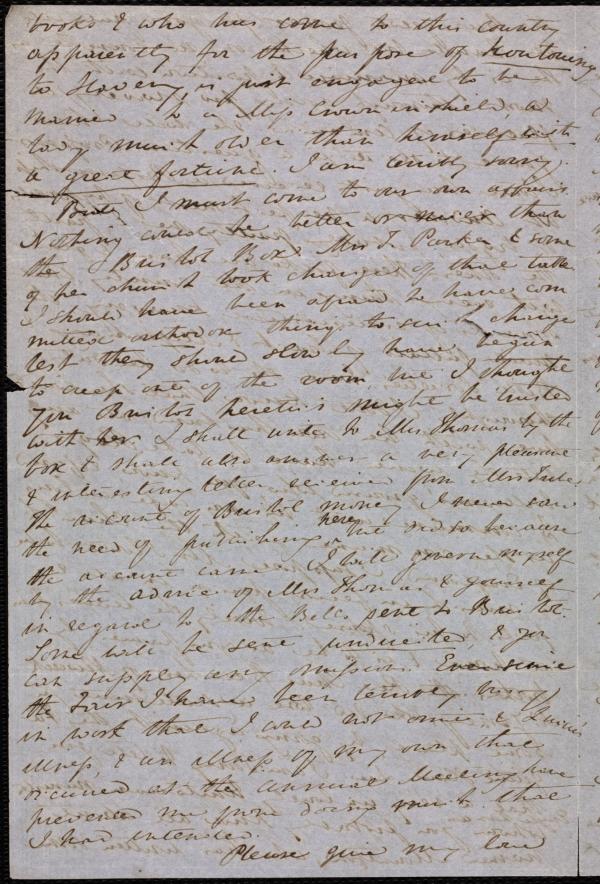 books & who has come to this country
apparently for the purpose of
to Slavery, is just engaged to be
married to a Miss Crowninshield, a
lady much older than himself with
a great fortune. I am terribly sorry.
But I must come to our own affairs
Nothing could be better or nicer than
the Bristol Box. Mrs T. Parker & some
of her church took charge of that table
I should have been afraid to have com
mitted orthodox thing to such charge
lest they should slowly have begun
to creep out of the room, but I thought
you Bristol heretics might be trusted
with her. I shall write to Mrs Thomas by the
box & shall also answer a very pleasant
& interesting letter received from Mrs
The account of Bristol money I never saw
the need of publishing here but did so because
the account came. I will govern myself
by the advice of Mrs Thomas & yourself
in regard to the Bells sent to Bristol.
Some will be sent undirected, & you
can supply any omission. Ever since
the Fair I have been terribly busy
in work that I could not omit, &
illness, & an illness of my own that
occurred at the annual Meeting have
prevented me from doing much that
I had intended.
Please give my love